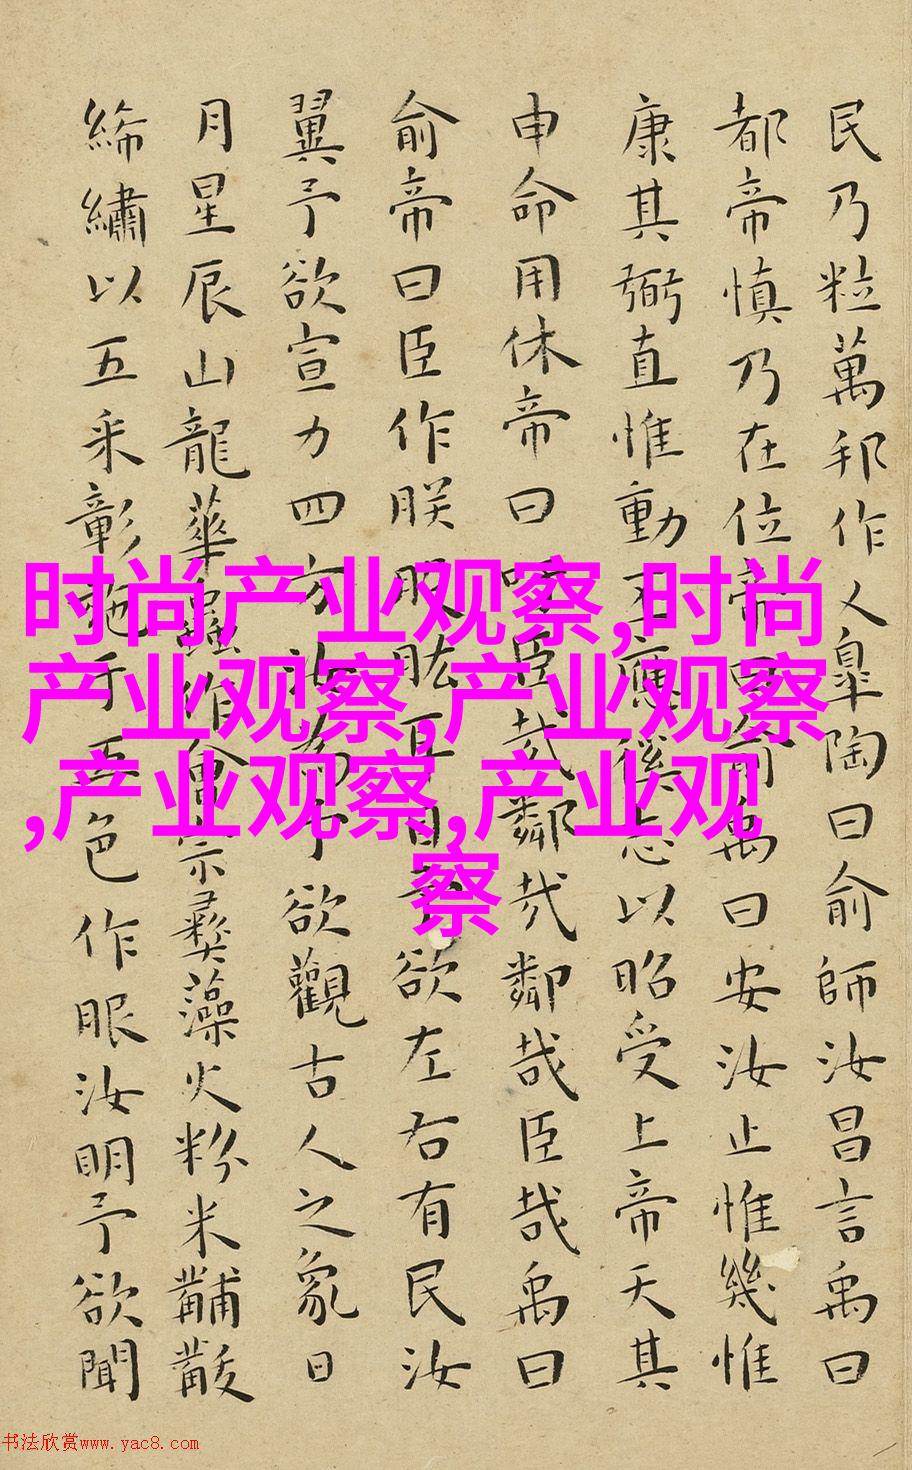 民乃粒萬邦作人皐陶曰俞師汝昌言禹曰
都帝慎乃在位帝曰俞禹曰安汝止惟幾惟
康其弼直惟動丕應徯志以昭受上帝天其
申命用休帝曰吁臣哉鄰哉鄰哉臣哉禹曰
俞帝曰臣作朕股肱耳目予欲左右有民汝
翼予欲宣力四方汝為予欲觀古人之象日
月星辰山龍華蟲作會宗彝藻火粉米黼黻
絺繡以五采彰施于五色作服汝明予欲聞
时尚产业观察,时尚
产业观察,产业观察
,产业观察,产业观
察
书法欣赏www.yac8.com